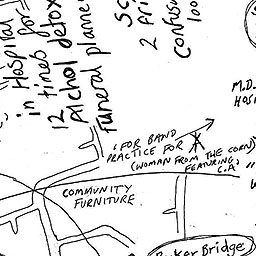 Hospital
in times for
12
Alchol detox
funeral planne
SC
2 Fri
Confus
100
M.D.
HOSI
"FOR BAND
PRACTICE FOR
(WOMAN FROM THE CORN)
FEATURING
C.A"
COMMUNITY
FURNITURE
Bridge